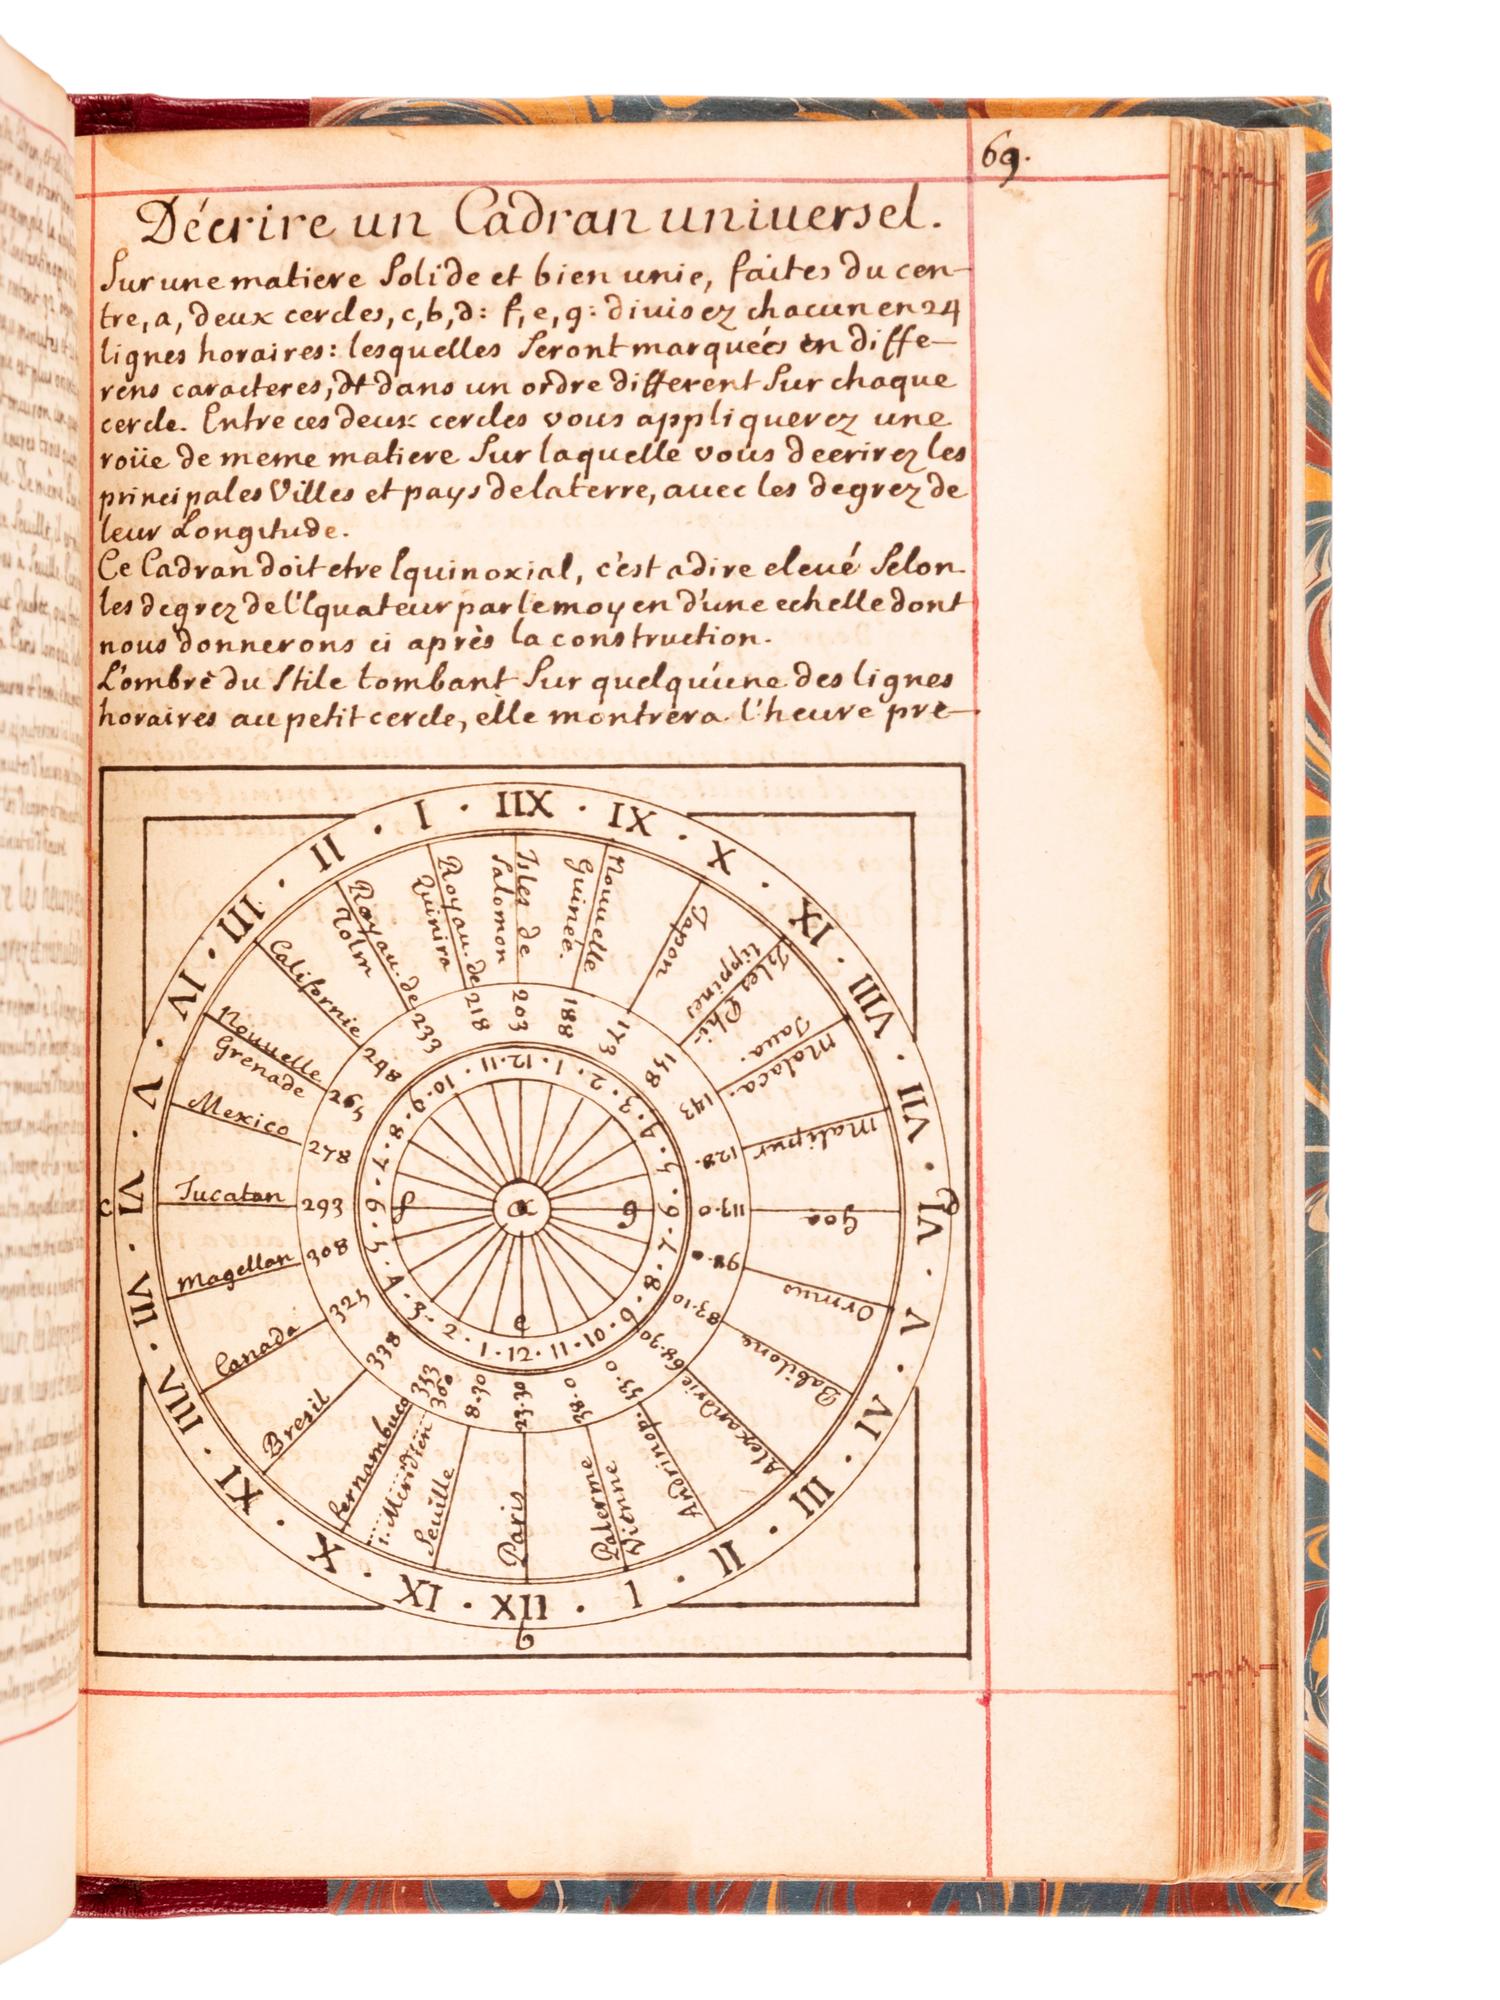 69.
Décrire un Cadran uniuersel.
Sur une matiere Solide et bien unie, faites du cen-
tre, a, deux cercles, c, b, d: f, e, g: diuisez chacun en 24
lignes horaires: lesquelles Seront marquées en diffe-
rens caracteres, et dans un ordre different Sur chaque
cercle. Entre ces deux cercles vous appliquerez une
roüe de meme matiere Sur laquelle vous decrirez les
principales Villes et pays de la terre, auec les degrez de
leur Longitude.
Ce Cadran doit etre Equinoxial, c'est a dire eleué Selon
les degrez de l'Equateur par le moyen d'une echelle dont
nous donnerons ci après la construction.
L'ombre du Stile tombant Sur quelqu'une des lignes
horaires au petit cercle, elle montrera l'heure pre-
XII · XI · X · IX · VIII · VII · VI · V · IV · III · II · I · XII · XI · X · IX · VIII · VII · VI · V · IV · III · II · I ·
Isles de
Salomon
203
Nouuelle
Guinée.
188
Japon
173
Isles Phi-
lippines
158
Malaca.
Jaua.
143
Malipur
128.
Goa
113.0
Ormus
98.
Babilone
83.10
Alexandrie
68.30
Andrinop.
53.0
Palerme
Vienne
38.0
Paris
23.30
Seuille
8.30
1. Meridien
360
fernambuco
353
Bresil
338
Canada
323
Magellan
308
Jucatan
293
Mexico
278
Nouuelle
Grenade
263
Californie
248
Royau. de
Tolm
233
Royau. de
Quiuira
218
12 · 1 · 2 · 3 · 4 · 5 · 6 · 7 · 8 · 9 · 10 · 11 · 12 · 1 · 2 · 3 · 4 · 5 · 6 · 7 · 8 · 9 · 10 · 11
a
f
g
e
c
b